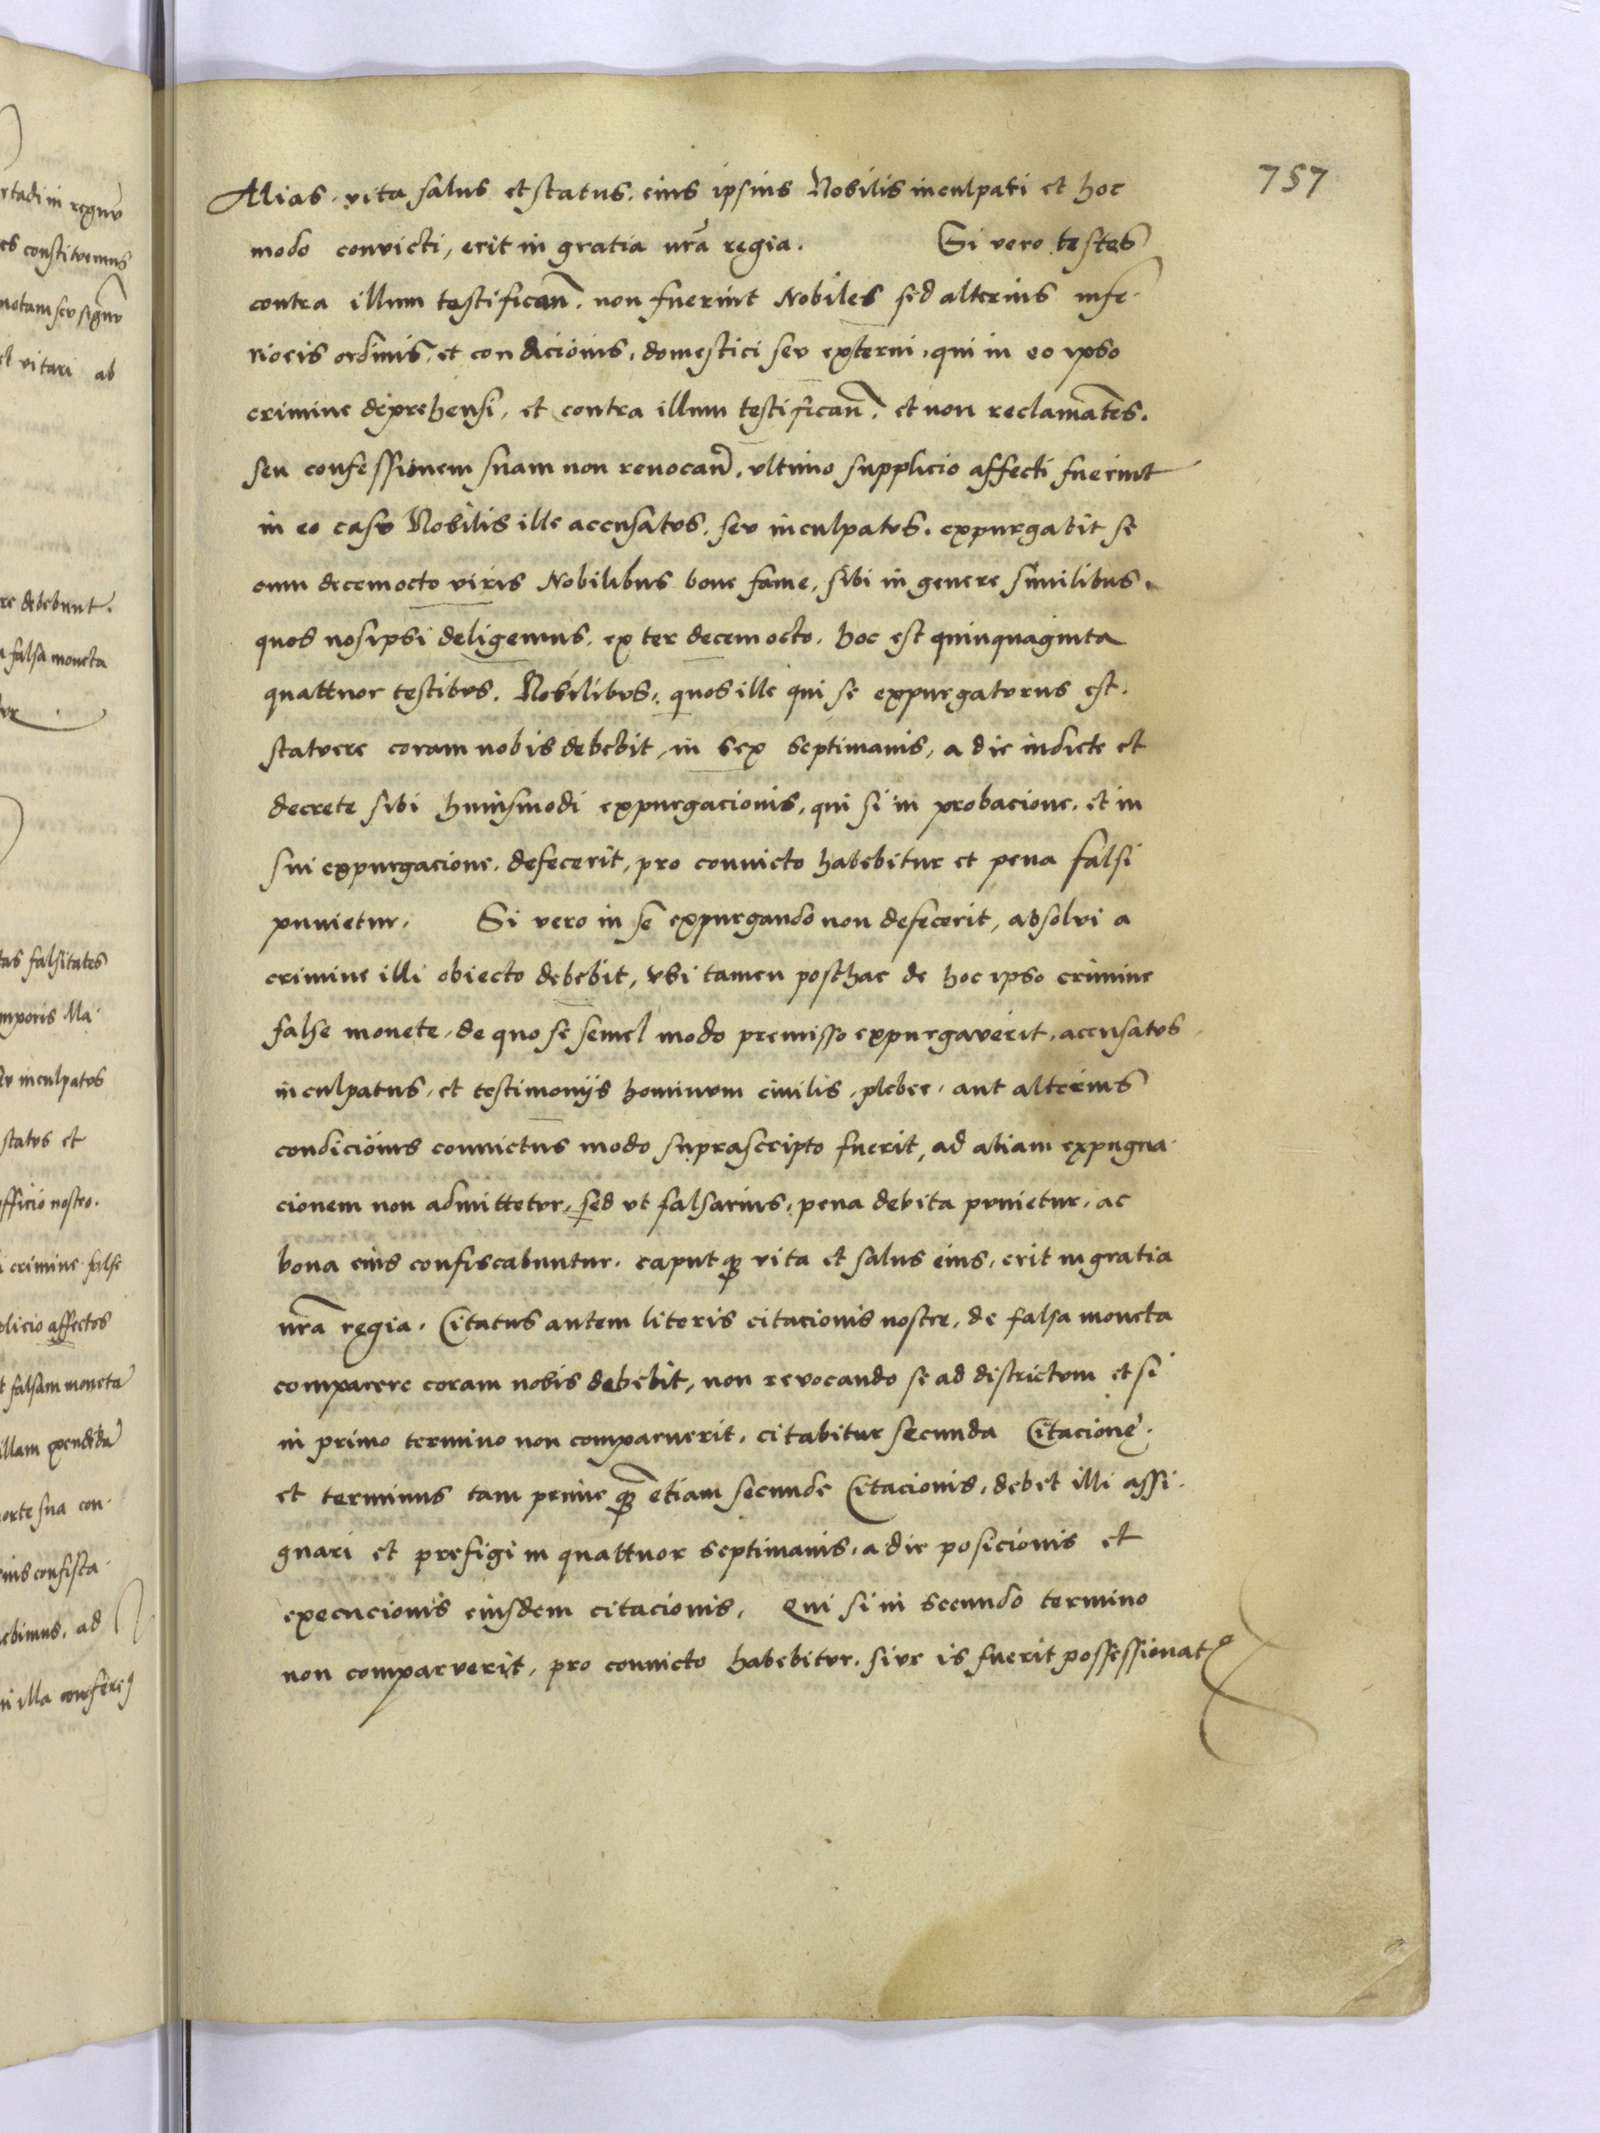 757
Alias vita salus et status, eius ipsius Nobilis inculpati et hoc
modo convicti, erit in gratia nr̄a regia. Si vero testes
contra illum testifican̄. non fuerint Nobiles sed alterius infe-
rioris ordinis, et condicionis, domestici seu externi, qui in eo ipso
crimine deprehensi, et contra illum testifican̄. et non reclamātes.
seu confessionem suam non revocan̄, ultimo supplicio affecti fuerint
in eo casu Nobilis ille accusatus, seu inculpatus, expurgabit se
cum decemocto viris Nobilibus bone fame, sibi in genere similibus.
quos nosipsi deligemus, ex ter decemocto, hoc est quinquaginta
quattuor testibus, Nobilibus, quos ille qui se expurgaturus est,
statuere coram nobis debebit, in sex septimanis, a die indicte et
decrete sibi huiusmodi expurgacionis, qui si in probacione, et in
sui expurgacione, defecerit, pro convicto habebitur et pena falsi
punietur. Si vero in se expurgando non defecerit, absolvi a
crimine illi obiecto debebit, ubi tamen posthac de hoc ipso crimine
false monete, de quo se semel modo premisso expurgaverit, accusatus
inculpatus, et testimoniis hominum civilis, plebee, aut alterius
condicionis convictus modo suprascripto fuerit, ad aliam expugna-
cionem non admittetur, sed ut falsarius, pena debita punietur, ac
bona eius confiscabuntur, caputq̢ vita et salus eius, erit in gratia
nr̄a regia. Citatus autem literis citacionis nostre, de falsa moneta
comparere coram nobis debebit, non revocando se ad districtum et si
in primo termino non comparuerit, citabitur secunda Citacione.
et terminus tam prime q̄ etiam secunde Citacionis, debet illi assi-
gnari et prefigi in quattuor septimanis, a die posicionis et
execucionis eiusdem citacionis, Qui si in secundo termino
non comparuerit, pro convicto habebitur, sive is fuerit possessionatꝰ
re debebunt.
falsa moneta
tas falsitates
inculpatus
status et
officio nostro.
crimine false
plicio affectos
falsam moneta
orte sua con-
ebimus, ad